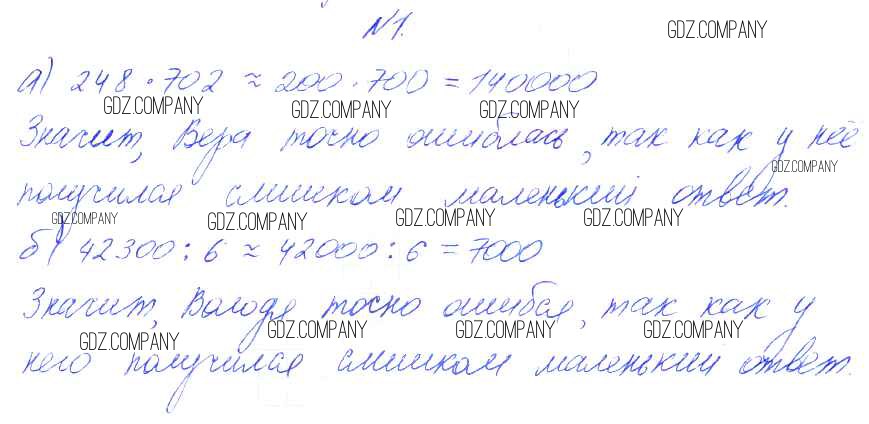 №1.
GDZ.COMPANY
а) 248 · 702 ≈ 200 · 700 = 140000
GDZ.COMPANY GDZ.COMPANY GDZ.COMPANY
Значит, Вера точно ошиблась, так как у неё
GDZ.COMPANY
получился слишком маленький ответ.
GDZ.COMPANY GDZ.COMPANY GDZ.COMPANY GDZ.COMPANY
б) 42300 : 6 ≈ 42000 : 6 = 7000
Значит, Володя точно ошибся, так как у
GDZ.COMPANY GDZ.COMPANY GDZ.COMPANY GDZ.COMPANY
него получился слишком маленький ответ.